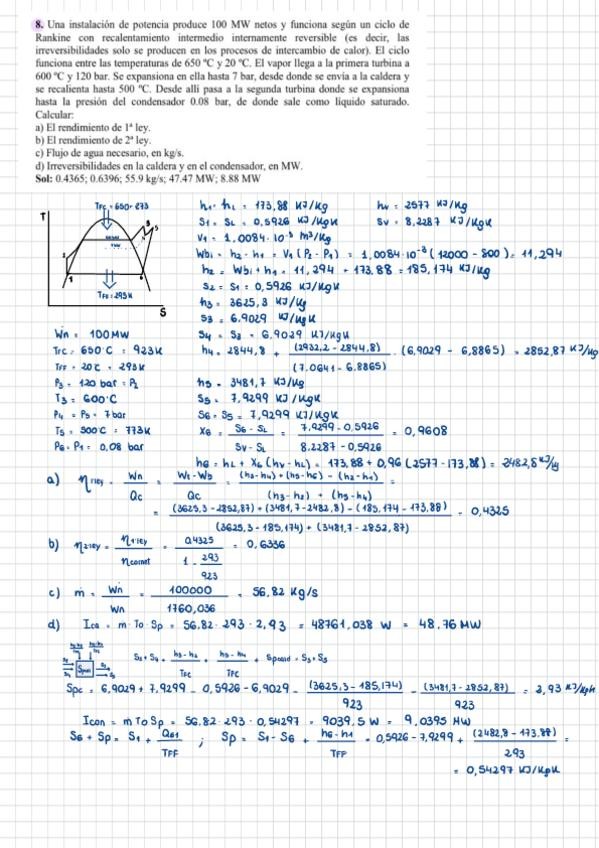 8. Una instalación de potencia produce 100 MW netos y funciona según un ciclo de
Rankine con recalentamiento intermedio internamente reversible (es decir, las
irreversibilidades solo se producen en los procesos de intercambio de calor). El ciclo
funciona entre las temperaturas de 650 ºC y 20 ºC. El vapor llega a la primera turbina a
600 ºC y 120 bar. Se expansiona en ella hasta 7 bar, desde donde se envía a la caldera y
se recalienta hasta 500 ºC. Desde allí pasa a la segunda turbina donde se expansiona
hasta la presión del condensador 0.08 bar, de donde sale como líquido saturado.
Calcular:
a) El rendimiento de 1ª ley.
b) El rendimiento de 2ª ley.
c) Flujo de agua necesario, en kg/s.
d) Irreversibilidades en la caldera y en el condensador, en MW.
Sol: 0.4365; 0.6396; 55.9 kg/s; 47.47 MW; 8.88 MW
TFC = 650 + 273
T
TFF = 293K
S
h1 = hL = 173,88 KJ/Kg
hv = 2577 KJ/Kg
S1 = SL = 0,5926 KJ/KgK
Sv = 8,2287 KJ/KgK
V1 = 1,0084·10⁻³ m³/Kg
Wb1 = h2 - h1 = V1 (P2 - P1) = 1,0084·10⁻³ (12000 - 800) = 11,294
h2 = Wb1 + h1 = 11,294 + 173,88 = 185,174 KJ/Kg
S2 = S1 = 0,5926 KJ/KgK
h3 = 3625,3 KJ/Kg
S3 = 6,9029 KJ/KgK
S4 = S3 = 6,9029 KJ/KgK
h4 = 2844,8 + (2932,2 - 2844,8) / (7,0641 - 6,8865) · (6,9029 - 6,8865) = 2852,87 KJ/Kg
h5 = 3481,7 KJ/Kg
S5 = 7,9299 KJ/KgK
S6 = S5 = 7,9299 KJ/KgK
X6 = S6 - SL / Sv - SL = 7,9299 - 0,5926 / 8,2287 - 0,5926 = 0,9608
h6 = hL + X6 (hv - hL) = 173,88 + 0,96 (2577 - 173,88) = 2482,8 KJ/Kg
Wn = 100MW
TFC = 650ºC = 923K
TFF = 20ºC = 293K
P3 = 120 bar = P2
T3 = 600ºC
P4 = P5 = 7bar
T5 = 500ºC = 773K
P6 = P1 = 0,08 bar
a) η1ley = Wn / Qc = Wt - Wb / Qc = (h3 - h4) + (h5 - h6) - (h2 - h1) / (h3 - h2) + (h5 - h4) =
= (3625,3 - 2852,87) + (3481,7 - 2482,8) - (185,174 - 173,88) / (3625,3 - 185,174) + (3481,7 - 2852,87) = 0,4325
b) η2ley = η1ley / ηcarnot = 0,4325 / 1 - 293/923 = 0,6336
c) ṁ = Wn / Wn = 100000 / 1760,036 = 56,82 Kg/s
d) Ica = m · To · Sp = 56,82 · 293 · 2,93 = 48761,038 W = 48,76 MW
Spc = 6,9029 + 7,9299 - 0,5926 - 6,9029 - (3625,3 - 185,174) / 923 - (3481,7 - 2852,87) / 923 = 2,93 KJ/KgK
Icon = m To Sp = 56,82 · 293 · 0,54297 = 9039,5 W = 9,0395 MW
S6 + Sp = S1 + Q61 / TFF ; Sp = S1 - S6 + h6 - h1 / TFF = 0,5926 - 7,9299 + (2482,8 - 173,88) / 293 =
= 0,54297 KJ/KgK